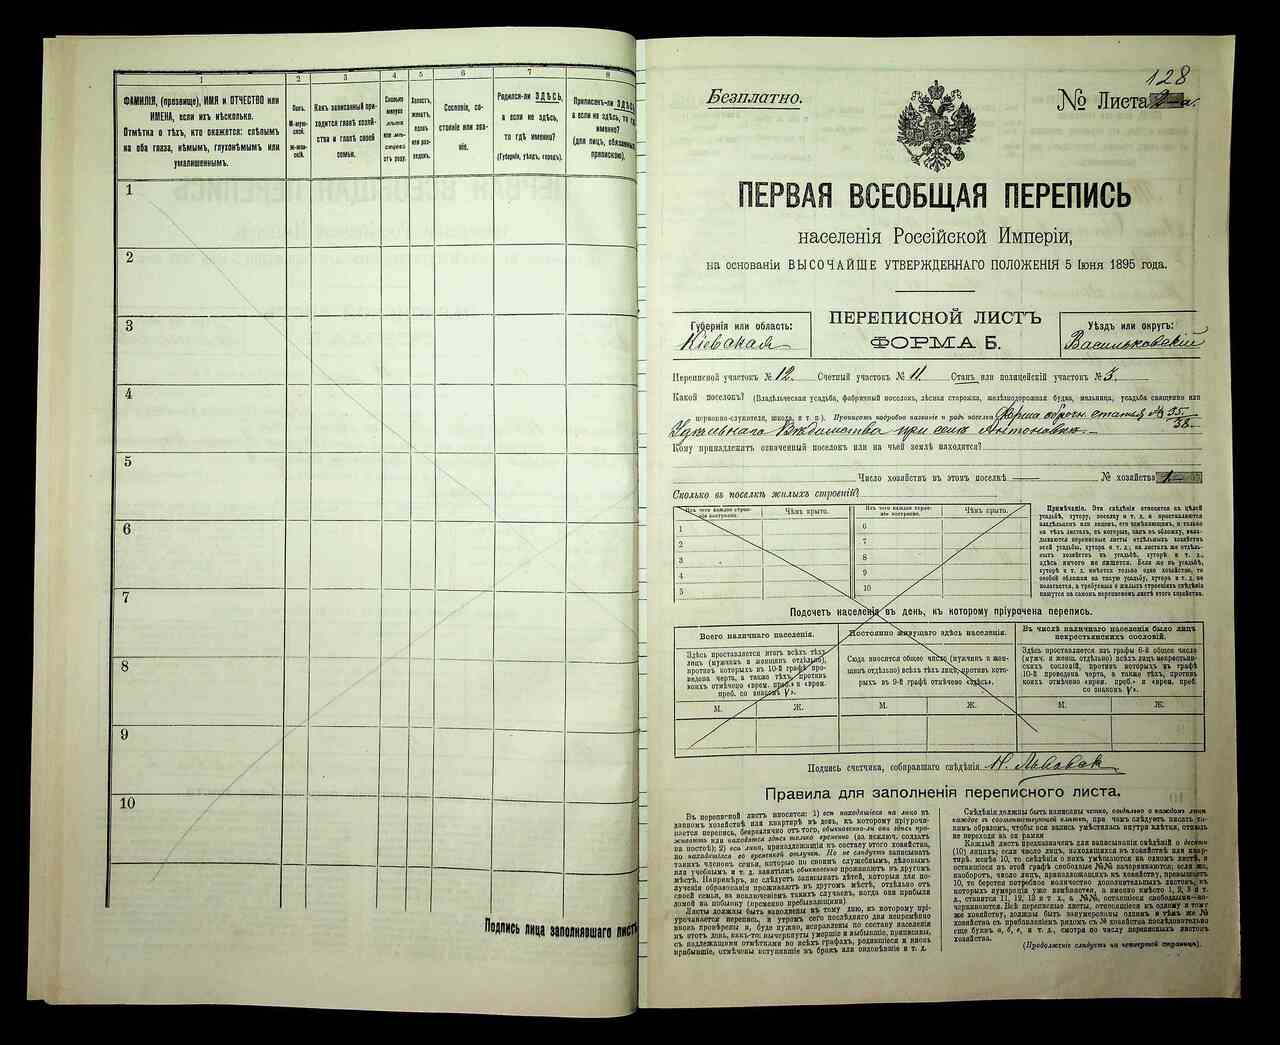 1
2
3
4
5
6
7
8
ФАМИЛІЯ, (прозвище), ИМЯ и ОТЧЕСТВО или
ИМЕНА, если ихъ нѣсколько.
Отмѣтка о тѣхъ, кто окажется: слѣпымъ
на оба глаза, нѣмымъ, глухонѣмымъ или
умалишеннымъ.
Полъ.
М-мужской.
Ж-женскій.
Какъ записанный при-
ходится главѣ хозяй-
ства и главѣ своей
семьи.
Сколько
минуло
лѣтъ
или мѣ-
сяцевъ
отъ роду.
Холостъ,
женатъ,
вдовъ
или раз-
веденъ.
Сословіе, со-
стояніе или зва-
ніе.
Родился-ли ЗДѢСЬ,
а если не здѣсь,
то гдѣ именно?
(Губернія, уѣздъ, городъ).
Приписанъ-ли ЗДѢСЬ,
а если не здѣсь, то гдѣ
именно?
(для лицъ, обязанныхъ
припискою).
1
2
3
4
5
6
7
8
9
10
Подпись лица заполнявшаго листъ
128
Безплатно.
№ Листа 2-а.
ПЕРВАЯ ВСЕОБЩАЯ ПЕРЕПИСЬ
населенія Россійской Имперіи,
на основаніи ВЫСОЧАЙШЕ УТВЕРЖДЕННАГО ПОЛОЖЕНІЯ 5 Іюня 1895 года.
Губернія или область:
Кіевская
ПЕРЕПИСНОЙ ЛИСТЪ
ФОРМА Б.
Уѣздъ или округъ:
Васильковскій
Переписной участокъ № 12. Счетный участокъ № 11. Станъ или полицейскій участокъ № 3.
Какой поселокъ? (Владѣльческая усадьба, фабричный поселокъ, лѣсная сторожка, желѣзнодорожная будка, мельница, усадьба священно или
церковно-служителя, школа, и т. п.). Прописать подробно названіе и родъ поселка Ферма оброчн. статья № 35/38.
Удѣльнаго Вѣдомства при селѣ Антоновкѣ
Кому принадлежитъ означенный поселокъ или на чьей землѣ находится?
Число хозяйствъ въ этомъ поселкѣ № хозяйства 1
Сколько въ поселкѣ жилыхъ строеній?
Изъ чего каждое строе-
ніе построено.
Чѣмъ крыто.
Изъ чего каждое строе-
ніе построено.
Чѣмъ крыто.
1
2
3
4
5
6
7
8
9
10
Примѣчаніе. Эти свѣдѣнія относятся къ цѣлой
усадьбѣ, хутору, поселку и т. д. и проставляются
владѣльцемъ или лицомъ, его замѣняющимъ, и только
на тѣхъ листахъ, въ которые, какъ въ обложку, вкла-
дываются переписные листы отдѣльныхъ хозяйствъ
всей усадьбы, хутора и т. д.; на листахъ же отдѣль-
ныхъ хозяйствъ въ усадьбѣ, хуторѣ и т. д.,
здѣсь ничего не пишется. Если же въ усадьбѣ,
хуторѣ и т. д. имѣется только одно хозяйство, то
особой обложки на такую усадьбу, хуторъ и т. д. не
полагается, а требуемыя о жилыхъ строеніяхъ свѣдѣнія
пишутся на самомъ переписномъ листѣ этого хозяйства.
Подсчетъ населенія въ день, къ которому пріурочена перепись.
Всего наличнаго населенія.
Здѣсь проставляется итогъ всѣхъ тѣхъ
лицъ (мужчинъ и женщинъ отдѣльно),
противъ которыхъ въ 10-й графѣ про-
ведена черта, а также тѣхъ, противъ
коихъ отмѣчено «врем. преб.» и «врем.
преб. со знакомъ V».
Постоянно живущаго здѣсь населенія.
Сюда вносится общее число (мужчинъ и жен-
щинъ отдѣльно) всѣхъ тѣхъ лицъ, противъ кото-
рыхъ въ 9-й графѣ отмѣчено «здѣсь».
Въ числѣ наличнаго населенія было лицъ
некрестьянскихъ сословій.
Здѣсь проставляется изъ графы 6-й общее число
(мужч. и женщ. отдѣльно) всѣхъ лицъ некрестьян-
скихъ сословій, противъ которыхъ въ графѣ
10-й проведена черта, а также тѣхъ, противъ
коихъ отмѣчено «врем. преб.» и «врем. преб.
со знакомъ V».
М.
Ж.
М.
Ж.
М.
Ж.
Подпись счетчика, собиравшаго свѣдѣнія
Правила для заполненія переписного листа.
Въ переписной листъ вносятся: 1) всѣ находящіеся на лицо въ
данномъ хозяйствѣ или квартирѣ въ день, къ которому пріурочи-
вается перепись, безразлично отъ того, обыкновенно-ли они здѣсь про-
живаютъ или находятся здѣсь только временно (за исключ. солдатъ
на постоѣ); 2) всѣ лица, принадлежащія къ составу этого хозяйства,
но находящіяся во временной отлучкѣ. Но не слѣдуетъ записывать
такихъ членовъ семьи, которые по своимъ служебнымъ, дѣловымъ
или учебнымъ и т. д. занятіямъ обыкновенно проживаютъ въ другомъ
мѣстѣ. Напримѣръ, не слѣдуетъ записывать дѣтей, которыя для по-
лученія образованія проживаютъ въ другомъ мѣстѣ, отдѣльно отъ
своей семьи, за исключеніемъ такихъ случаевъ, когда они прибыли
домой на побывку (временно пребывающіе)
Листы должны быть наполнены къ тому дню, къ которому прі-
урочивается перепись, и утромъ сего послѣдняго дня непремѣнно
вновь провѣрены и, буде нужно, исправлены по составу населенія
въ этотъ день, какъ-то: вычеркнуты умершіе и выбывшіе, приписаны,
съ надлежащими отмѣтками во всѣхъ графахъ, родившіеся и вновь
прибывшіе, отмѣчены вступившіе въ бракъ или овдовѣвшіе и т. д.
Свѣдѣнія должны быть написаны четко, отдѣльно о каждомъ лицѣ
каждое въ соотвѣтствующей клѣткѣ, при чемъ слѣдуетъ писать та-
кимъ образомъ, чтобы вся запись умѣстилась внутри клѣтки, отнюдь
не переходя за ея рамки
Каждый листъ предназначенъ для записыванія свѣдѣній о десяти
(10) лицахъ; если число лицъ, находящихся въ хозяйствѣ или квар-
тирѣ, менѣе 10, то свѣдѣнія о нихъ умѣщаются на одномъ листѣ, и
оставшіеся въ этой графѣ свободные №№ зачеркиваются; если же,
наоборотъ, число лицъ, принадлежащихъ къ хозяйству, превышаетъ
10, то берется потребное количество дополнительныхъ листовъ, въ
которыхъ нумерація уже измѣняется, а именно вмѣсто 1, 2, 3 и т.
д., ставится 11, 12, 13 и т. д., а №№, оставшіеся свободными—за-
черкиваются. Всѣ переписные листы, относящіеся къ одному и тому
же хозяйству, должны быть занумерованы однимъ и тѣмъ же №
хозяйства съ прибавленіемъ рядомъ съ № хозяйства послѣдовательно
еще буквъ а, б, в, и т. д., смотря по числу переписныхъ листовъ
хозяйства.
(Продолженіе слѣдуетъ на четвертой страницѣ).